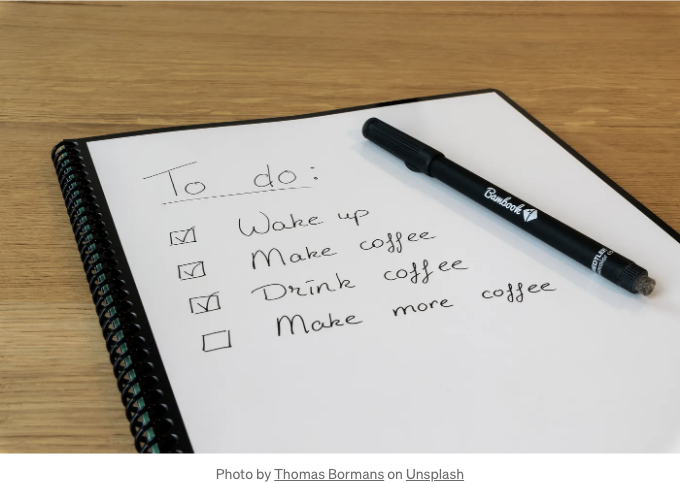 To do:
Wake up
Make coffee
Drink coffee
Make more coffee
Bambook
Photo by Thomas Bormans on Unsplash